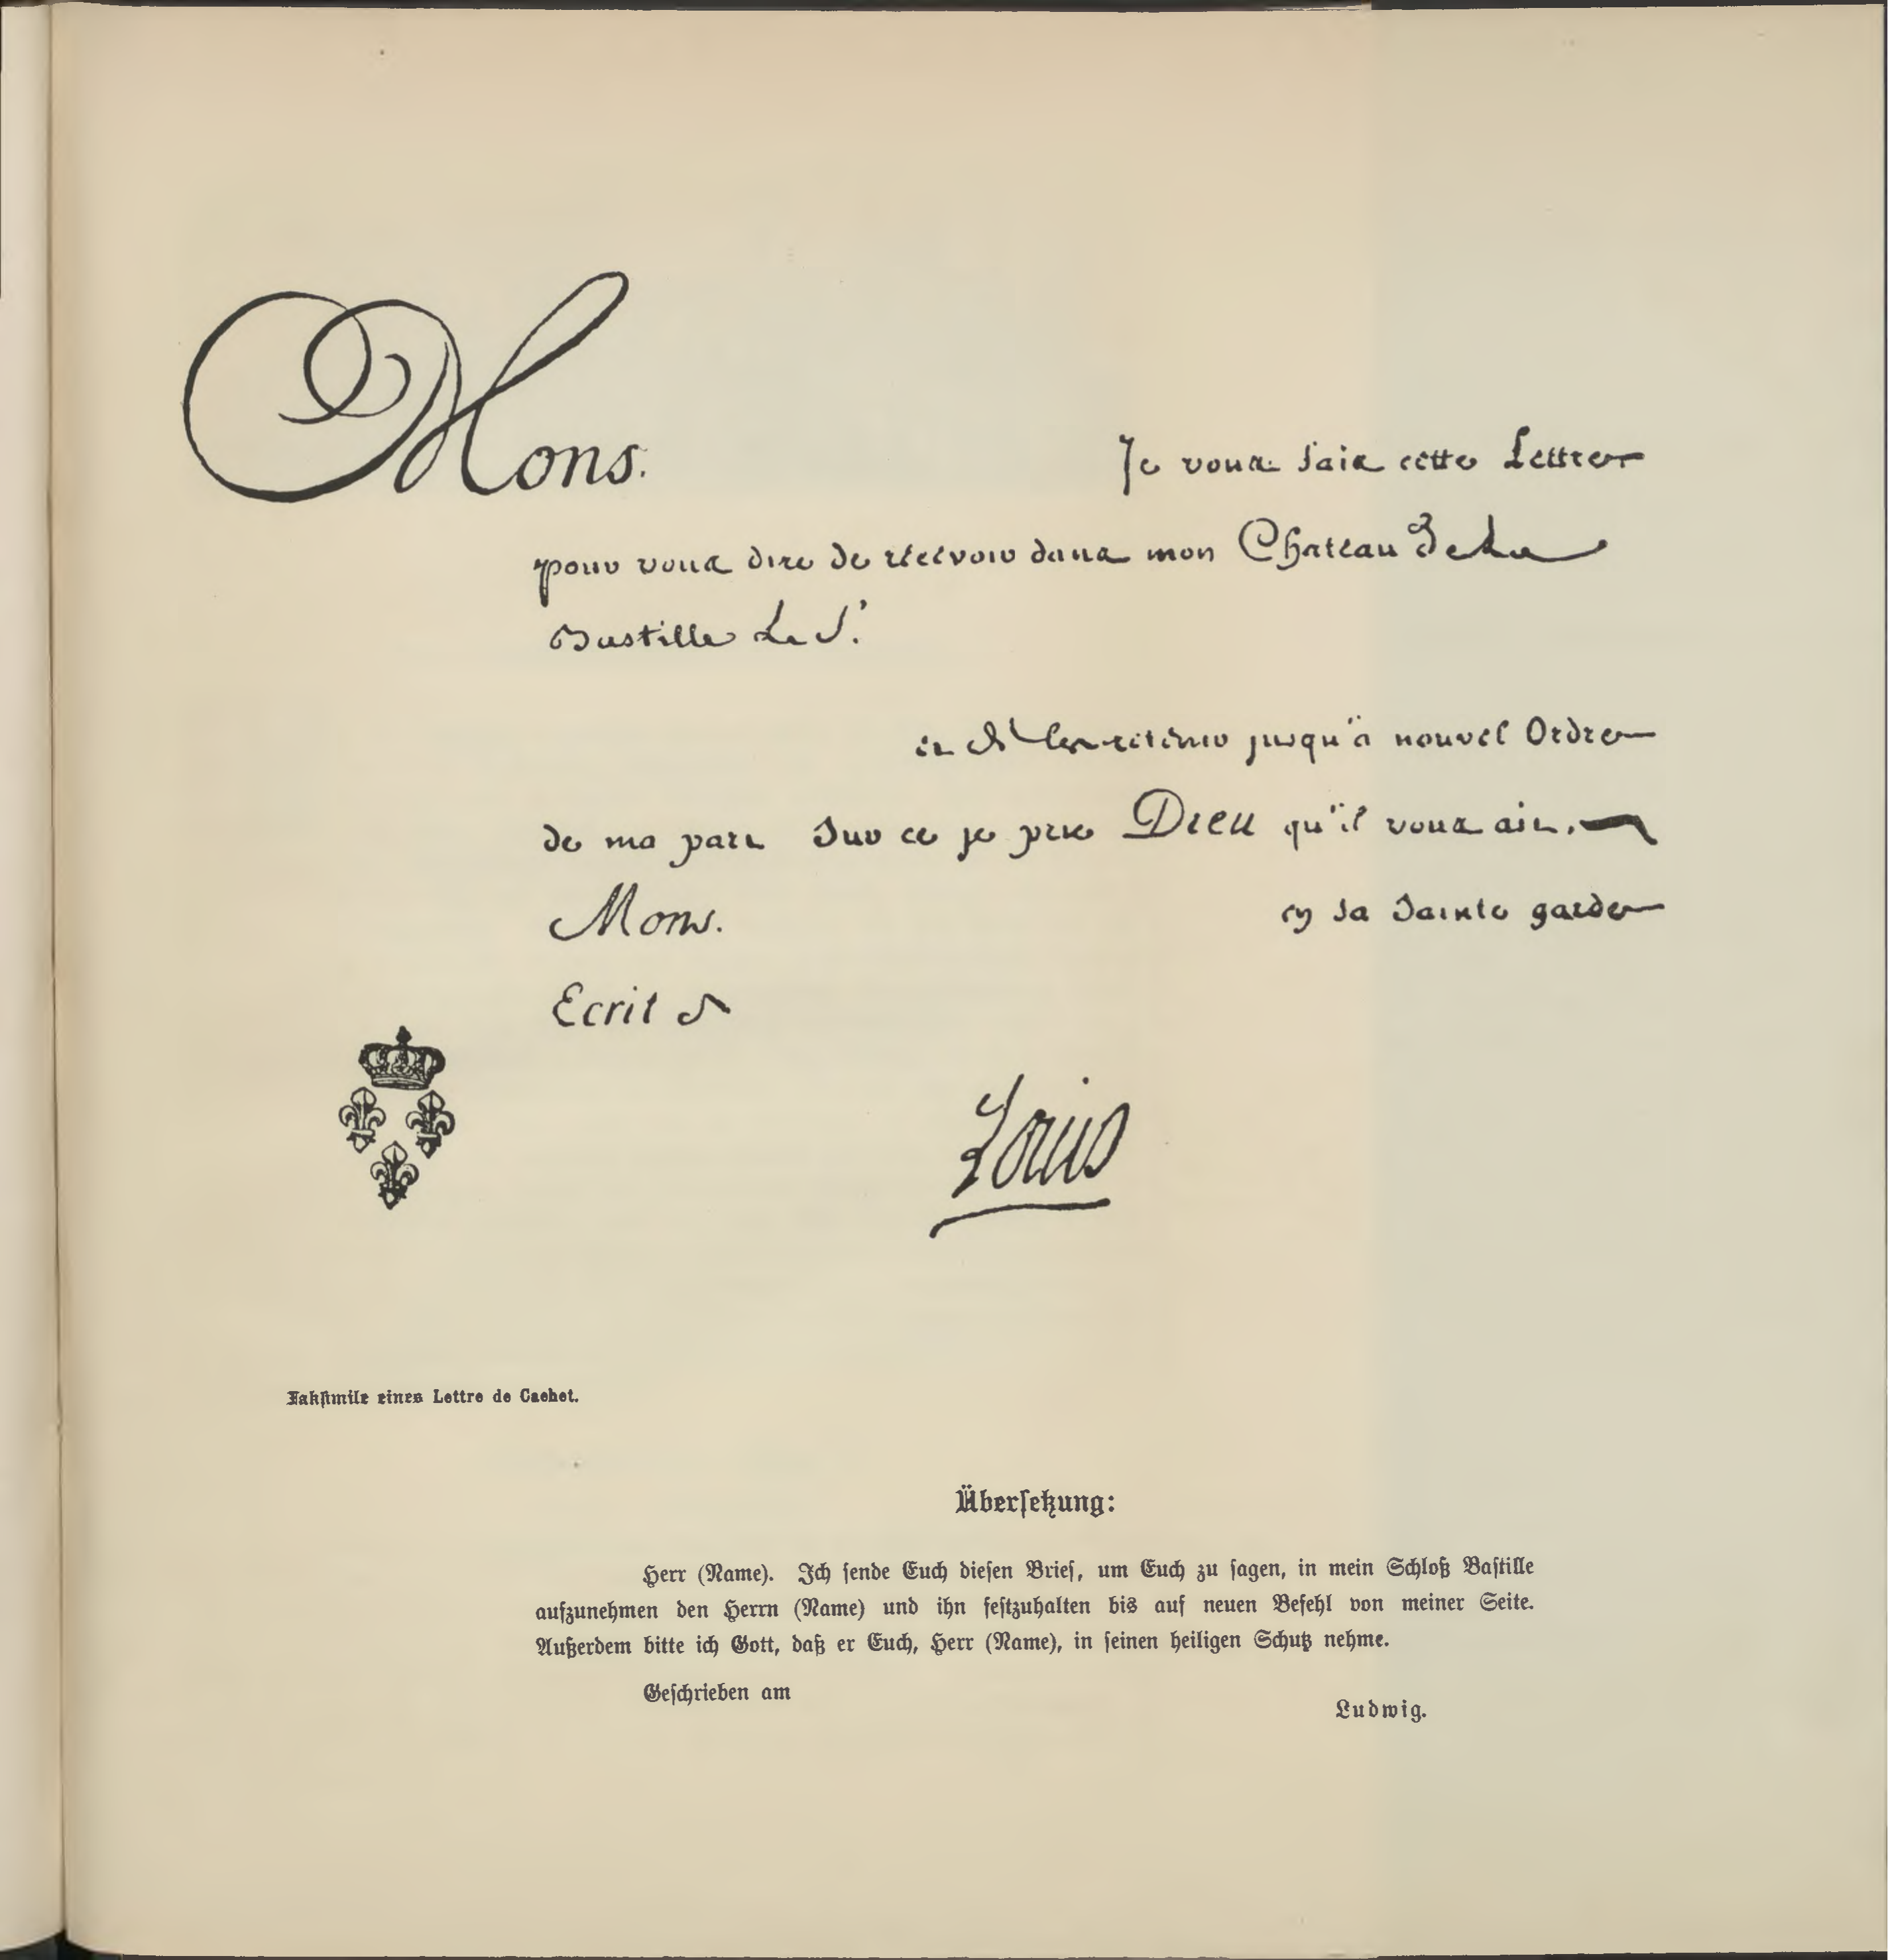 Mons. Je vous fais cette Lettre
pour vous dire de recevoir dans mon Chateau de La
Bastille Le S.r
et de retenir jusqu'à nouvel Ordre
de ma part Sur ce je prie Dieu qu'il vous ait.
Mons. en sa Sainte garde
Ecrit a
Louis
Fakſimile eines Lettre de Cachet.
Überſetzung:
Herr (Name). Ich ſende Euch dieſen Brief, um Euch zu ſagen, in mein Schloß Baſtille
aufzunehmen den Herrn (Name) und ihn feſtzuhalten bis auf neuen Befehl von meiner Seite.
Außerdem bitte ich Gott, daß er Euch, Herr (Name), in ſeinen heiligen Schutz nehme.
Geſchrieben am
Ludwig.